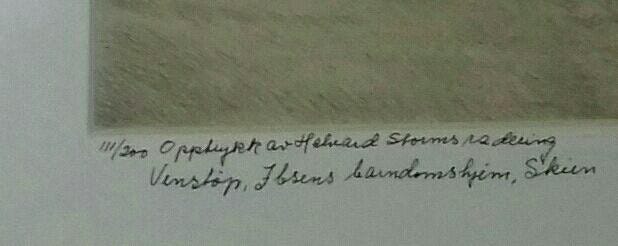 111/200 Opptrykk av Halvard Storms radering
Venstøp, Ibsens barndomshjem, Skien